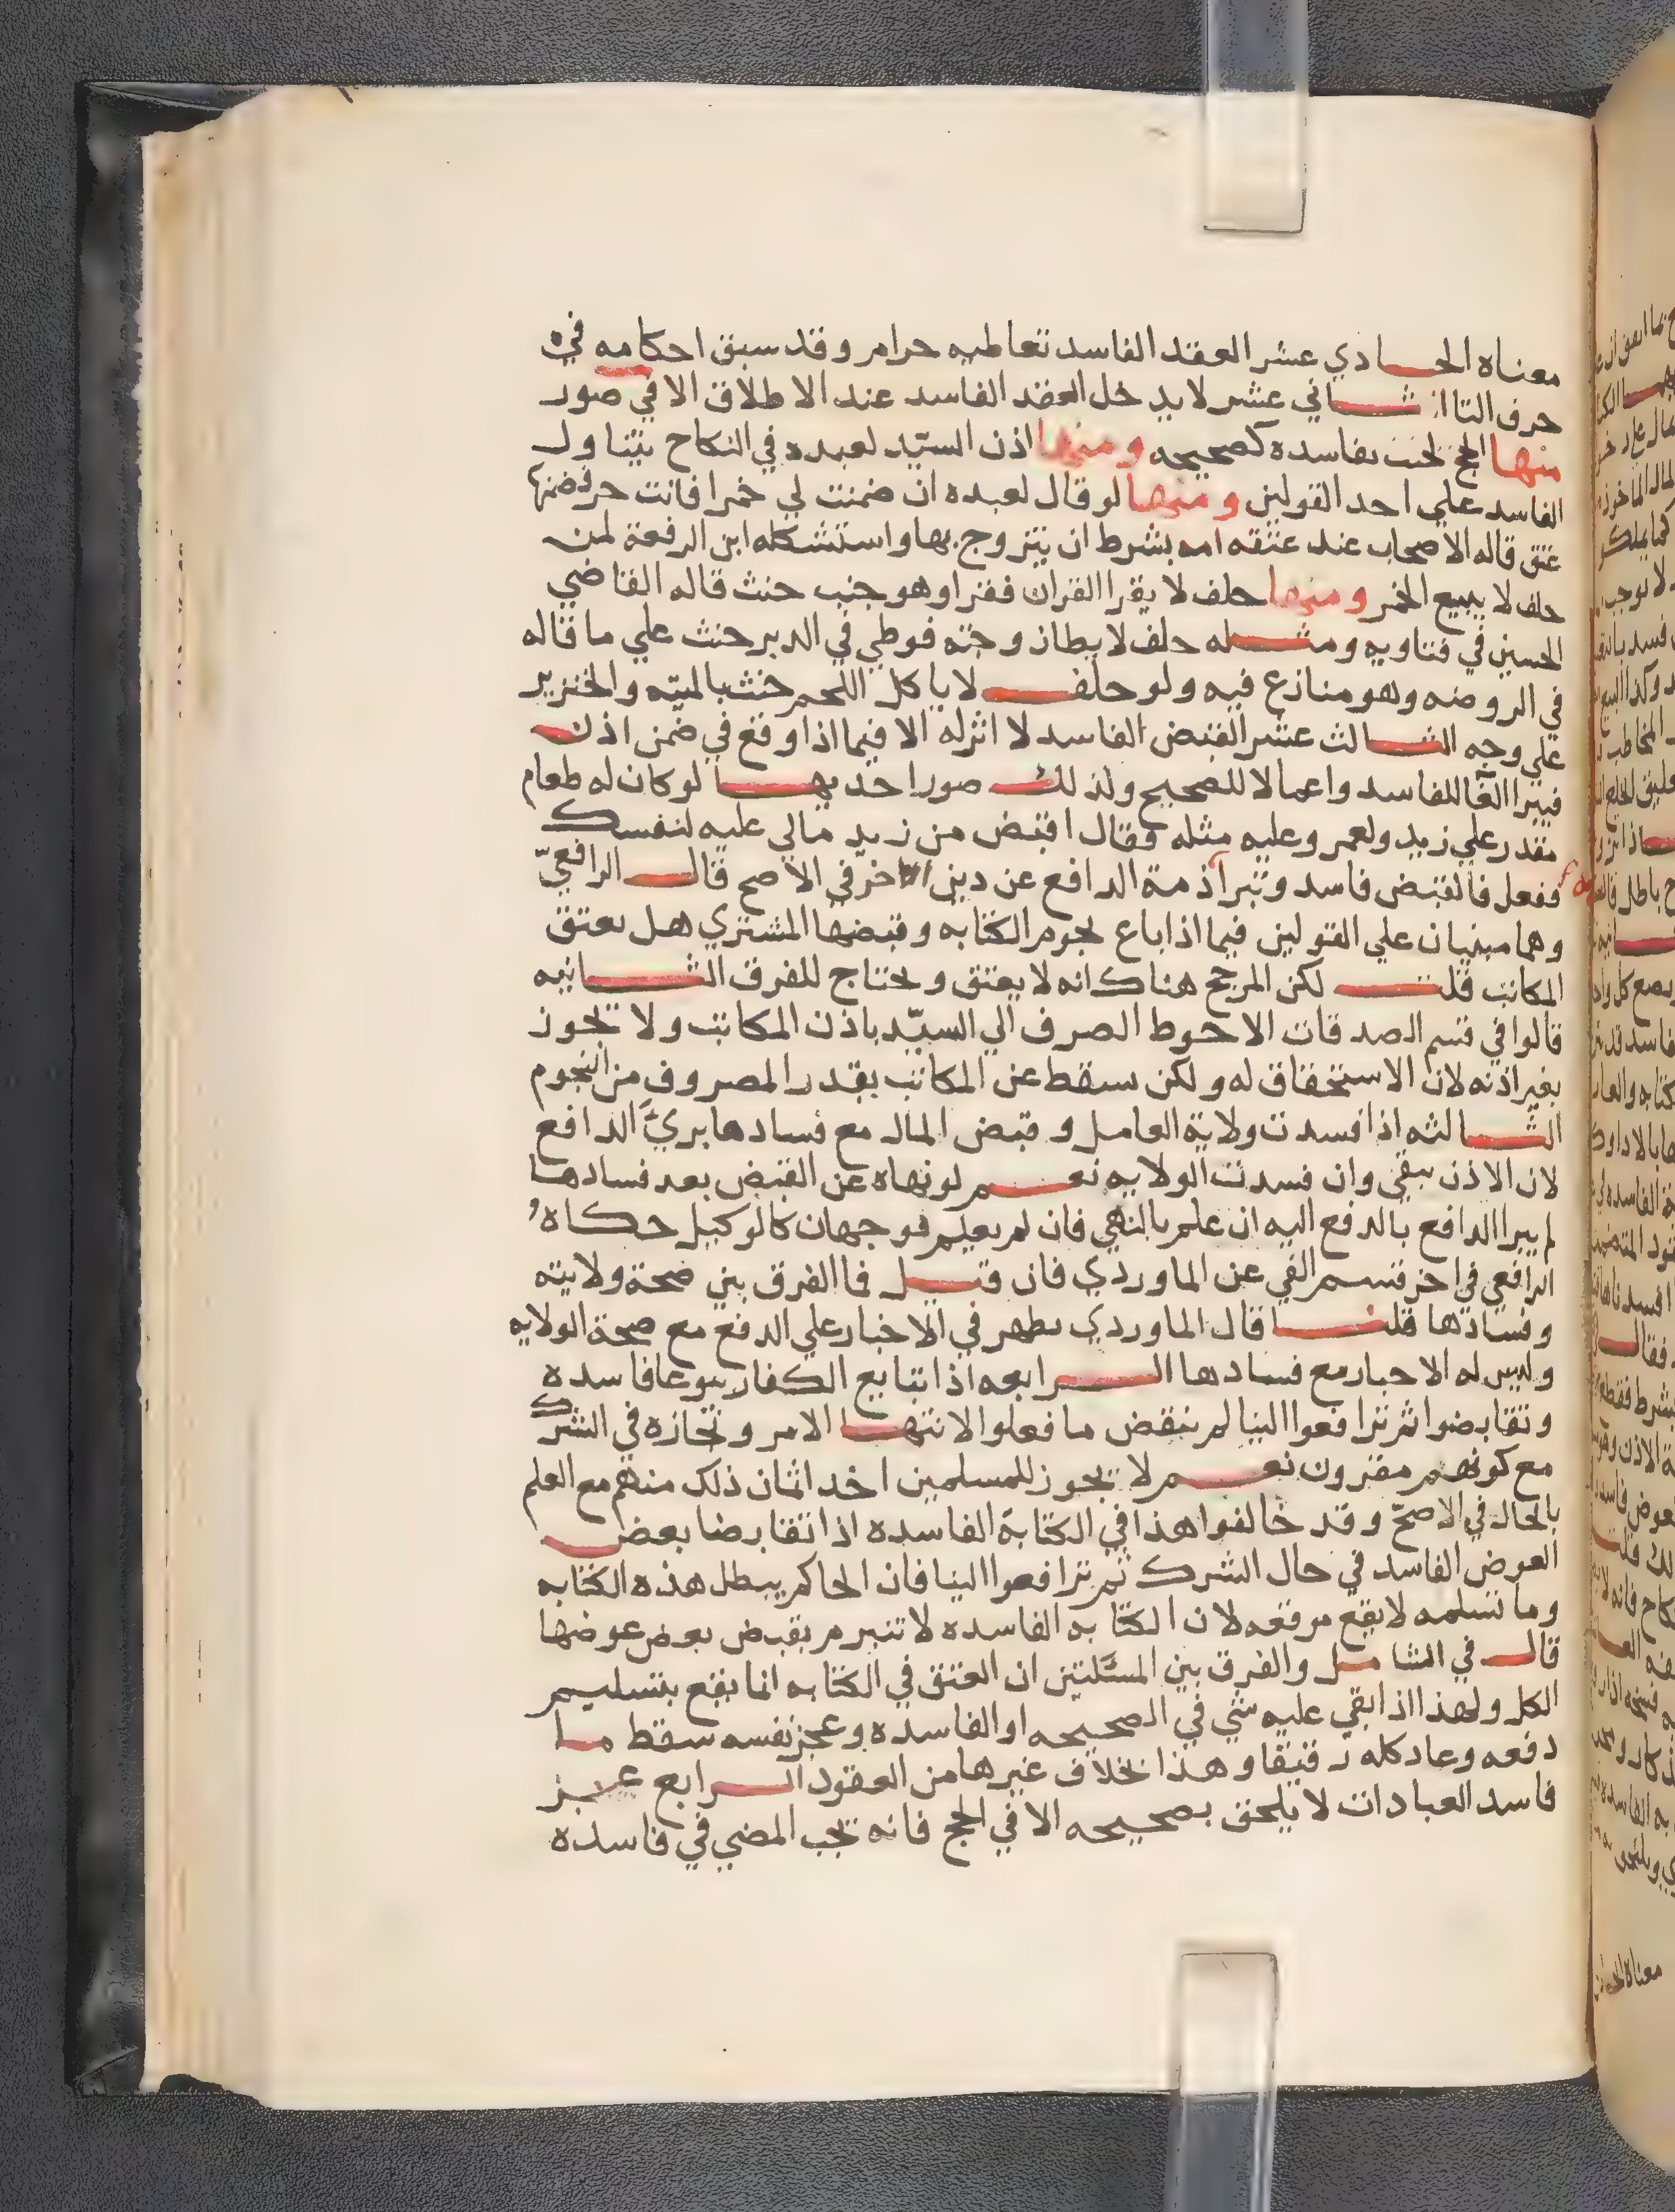 معناه الحادي عشر العقد الفاسد تعاطيه حرام وقد سبق احكامه في
حرف التا الثاني عشر لا يدخل العقد الفاسد عند الاطلاق الا في صور
منها الحج يجب بفاسده كصحيحه ومنها اذن السيّد لعبده في النكاح يتناول
الفاسد علي احد القولين ومنها لو قال لعبده ان ضمنت لي خمرا فانت حر فضمنها
عتق قاله الاصحاب عند عتقه امه بشرط ان يتزوج بها واستشكله ابن الرفعة لمن
حلف لا يبيع الخمر ومنها حلف لا يقرا القران فقرا وهو جنب حنث قاله القاضي
الحسين في فتاويه ومثله حلف لا يطا زوجته فوطي في الدبر حنث علي ما قاله
في الروضه وهو منازع فيه ولو حلف لا ياكل اللحم حنث بالميته والخنزير
علي وجه الثالث عشر القبض الفاسد لا اثر له الا فيما اذا وقع في ضمن اذن
فيبرا الغآ للفاسد واعمالا للصحيح ولذلك صور احديها لو كان له طعام
مقدر علي زيد ولعمر وعليه مثله فقال اقبض من زيد مالي عليه لنفسك
ففعل فالقبض فاسد وتبرا ذمة الدافع عن دين الاخر في الاصح قال الرافعيّ
وهما مبنيان علي القولين فيما اذا باع نجوم الكتابه وقبضها المشتري هل يعتق
المكاتب قلت لكن المرجح هناك انه لا يعتق ويحتاج للفرق الثانيه
قالوا في قسم الصدقات الاحوط الصرف الي السيّد باذن المكاتب ولا يجوز
بغير اذنه لان الاستحقاق له ولكن سقط عن المكاتب بقدر المصروف من النجوم
الثالثه اذا فسدت ولاية العامل وقبض المال مع فسادها بريَّ الدافع
لان الاذن يبقي وان فسدت الولايه نعم لو نهاه عن القبض بعد فسادها
لم يبرا الدافع بالدفع اليه ان علم بالنهي فان لم يعلم فوجهان كالوكيل حكاه
الرافعي في اخر قسم الفي عن الماوردي فان قيل فما الفرق بين صحة ولايته
وفسادها قلنا قال الماوردي يظهر في الاخبار علي الدفع مع صحة الولايه
وليس له الاجبار مع فسادها الرابعه اذا تبايع الكفار بيوعا فاسده
وتقابضوا ثم ترافعوا الينا لم ننقض ما فعلوا لانتها الامر ونجازه في الشرك
مع كونهم مقرون نعم لا يجوز للمسلمين اخذ اثمان ذلك منهم مع العلم
بالحال في الاصحّ وقد خالفوا هذا في الكتابة الفاسده اذا تقابضا بعض
العوض الفاسد في حال الشرك ثم ترافعوا الينا فان الحاكم يبطل هذه الكتابه
وما تسلمه لا يقع موقعه لان الكتابه الفاسده لا تنبرم بقبض بعض عوضها
قال في الشامل والفرق بين المسئلتين ان العتق في الكتابه انما يقع بتسليم
الكل ولهذا اذا بقي عليه شي في الصحيحه او الفاسده وعجز نفسه سقط ما
دفعه وعاد كله رقيقا وهذا بخلاف غيرها من العقود الرابع عشر
فاسد العبادات لا يلحق بصحيحه الا في الحج فانه يجب المضي في فاسده